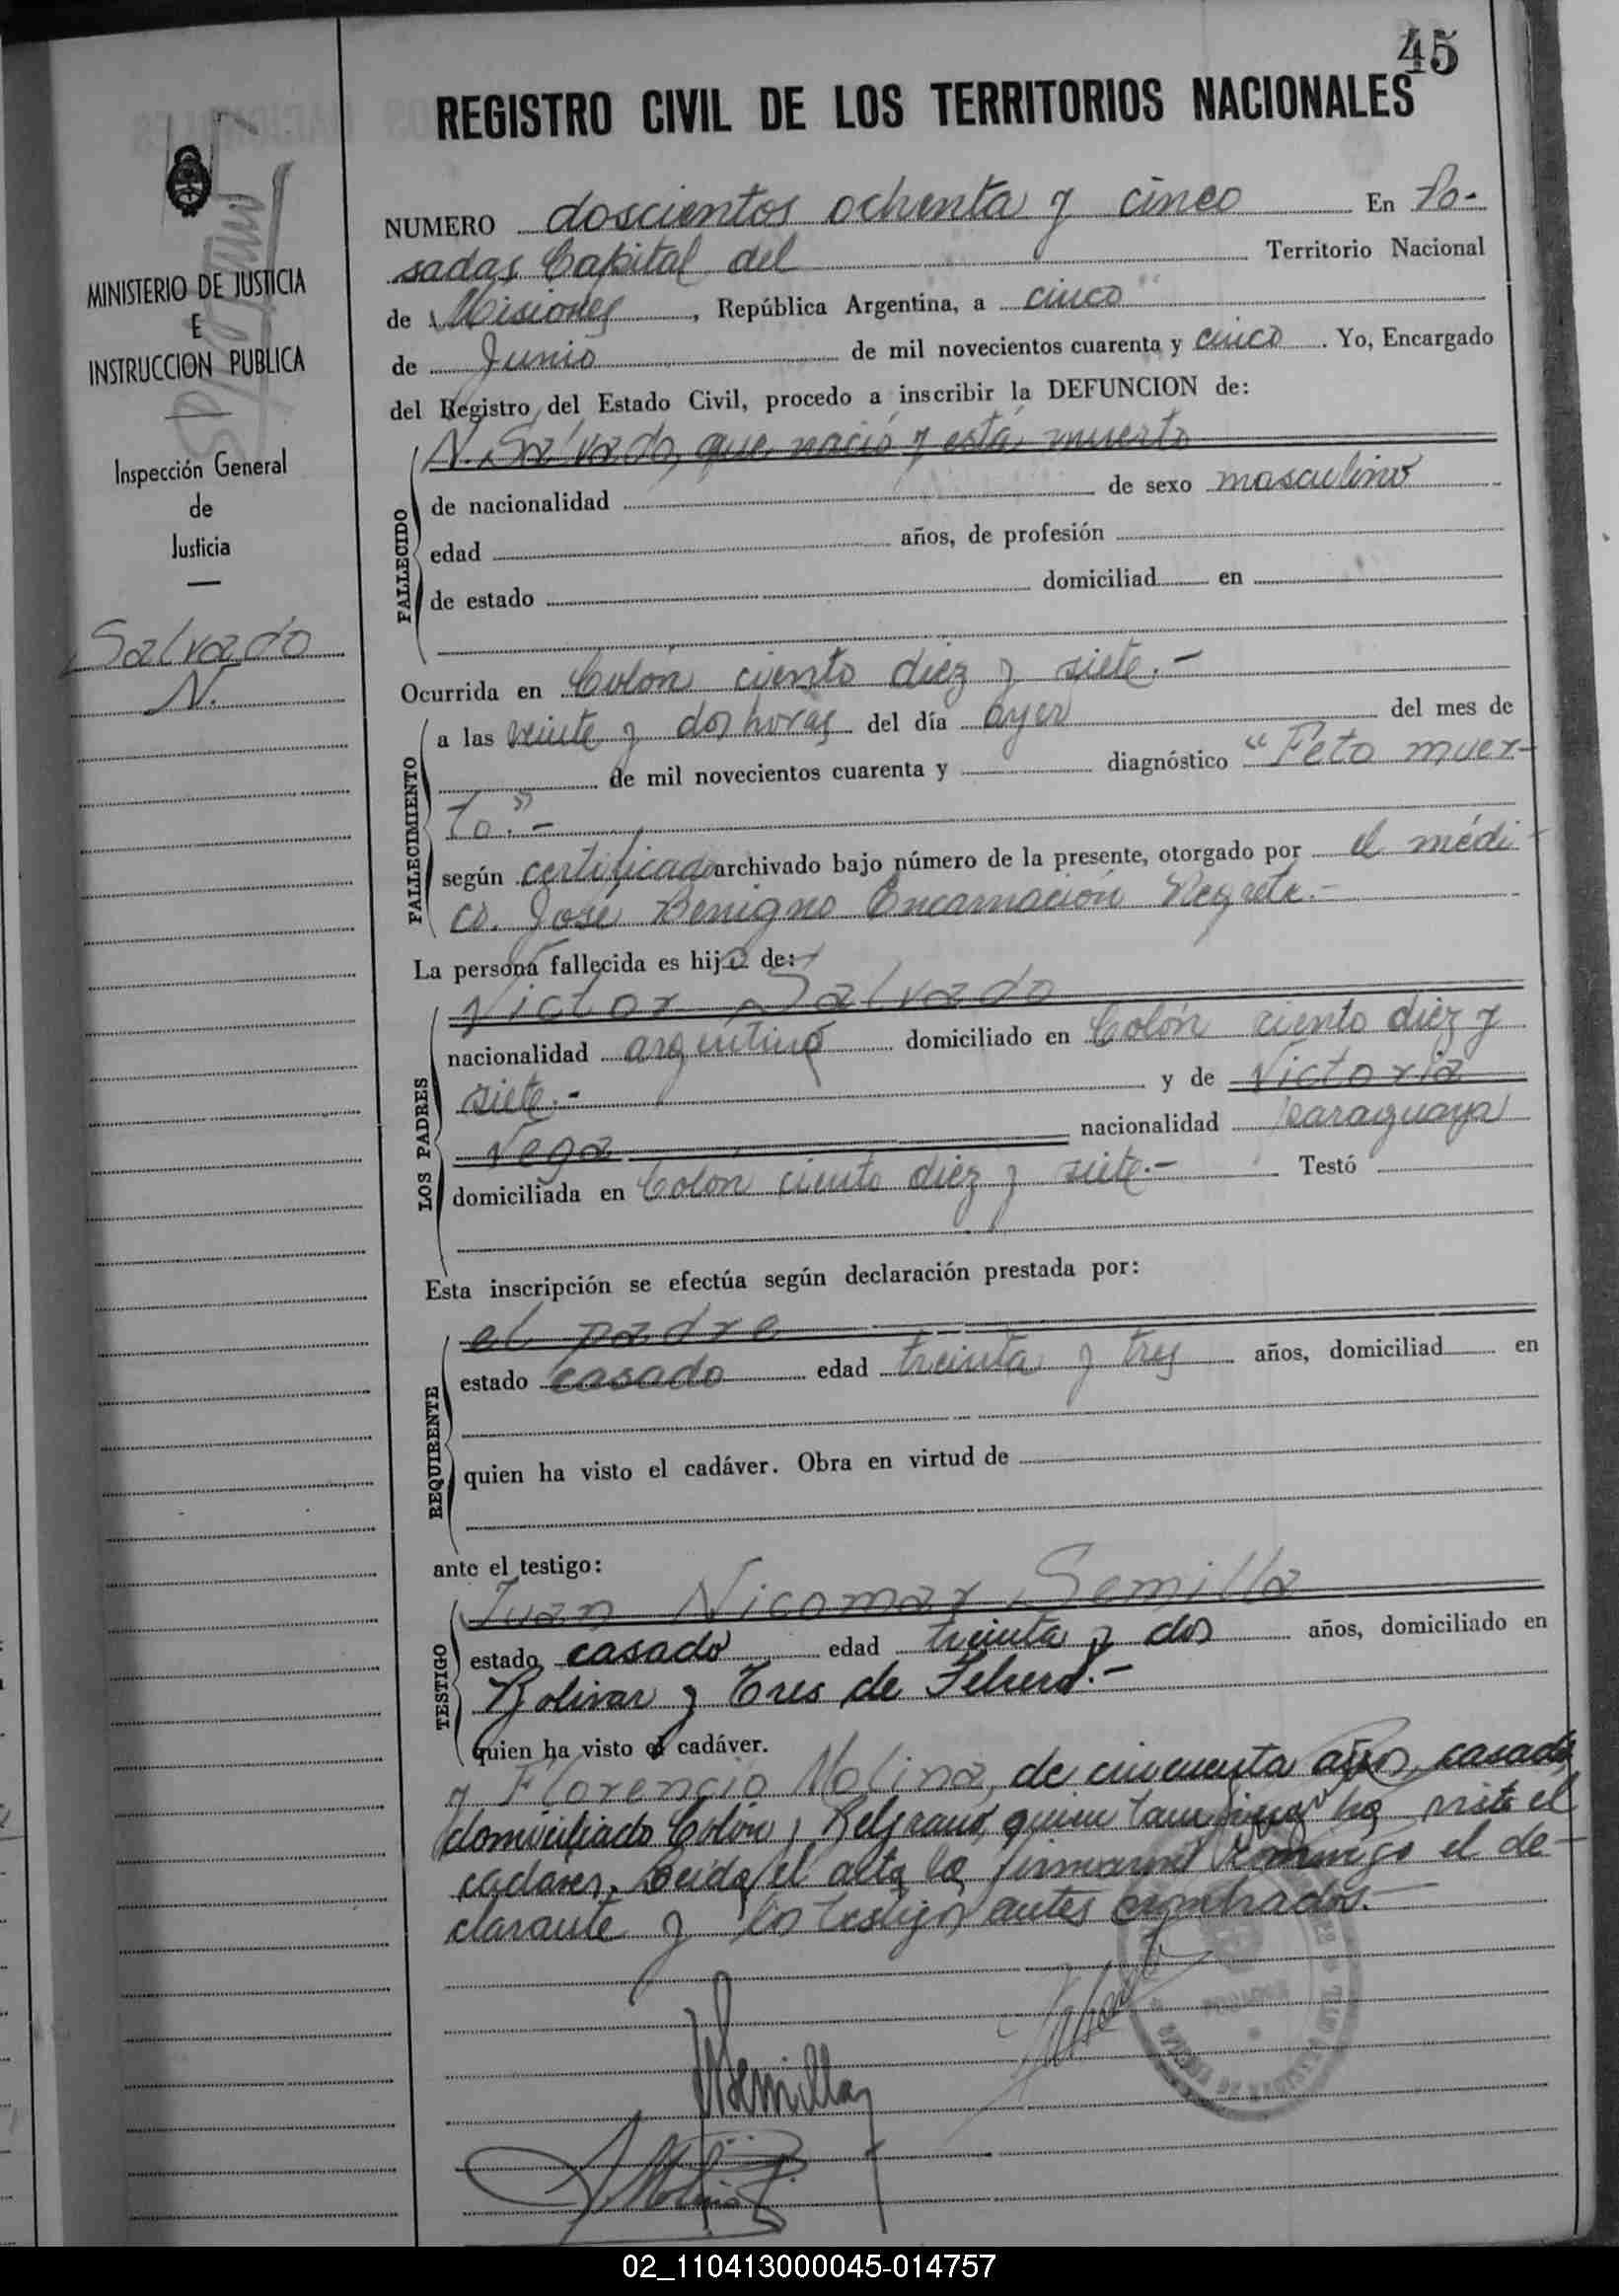 45
REGISTRO CIVIL DE LOS TERRITORIOS NACIONALES
MINISTERIO DE JUSTICIA
E
INSTRUCCION PUBLICA
Inspección General
de
Justicia
Salvado
N.
NUMERO doscientos ochenta y cinco En Po-
sadas Capital del Territorio Nacional
de Misiones, República Argentina, a cinco
de Junio de mil novecientos cuarenta y cinco. Yo, Encargado
del Registro del Estado Civil, procedo a inscribir la DEFUNCION de:
FALLECIDO
N. Salvado, que nació y está muerto
de nacionalidad de sexo masculino
edad años, de profesión
de estado domiciliad en
Ocurrida en Colón ciento diez y siete.-
FALLECIMIENTO
a las veinte y dos horas del día ayer del mes de
de mil novecientos cuarenta y diagnóstico "Feto muer-
to."-
según certificado archivado bajo número de la presente, otorgado por el médi-
co. José Benigno Encarnación Negrete.-
La persona fallecida es hijo de:
LOS PADRES
Victor Salvado
nacionalidad argentino domiciliado en Colón ciento diez y
siete.- y de Victoria
Vega nacionalidad paraguaya
domiciliada en Colón ciento diez y siete.- Testó
Esta inscripción se efectúa según declaración prestada por:
REQUIRENTE
el padre
estado casado edad treinta y tres años, domiciliad en
quien ha visto el cadáver. Obra en virtud de
ante el testigo:
TESTIGO
Juan Nicomar Semilla
estado casado edad treinta y dos años, domiciliado en
Bolivar y Tres de Febrero.-
quien ha visto el cadáver.
y Florencio Molina, de cincuenta años, casado,
domiciliado Colón y Belgrano, quien también ha visto el
cadaver. Leida el acta la firmaron conmigo el de-
clarante y los testigos antes nombrados.-
Semilla
Molina
02_110413000045-014757